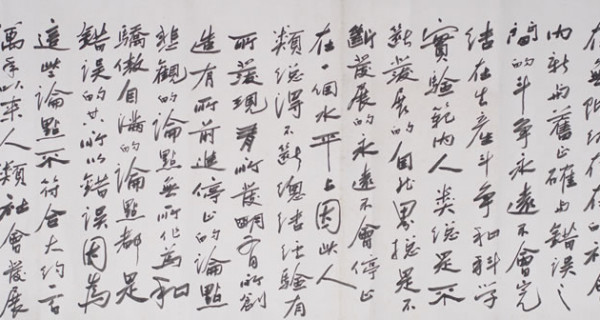 在無阶级存在的社會
内新與舊正確與错误之
間的斗争永遠不會完
结在生產斗争和科学
實验範内人类總是不
断發展的自然界總是不
断發展的永遠不會停止
在一個水平上因此人
類總得不断總结经验有
所發現有所發明有所創
造有所前進停止的論點
悲觀的論點無所作為和
驕傲自滿的論點都是
錯误的其所以錯误因為
這些論點不符合大约一百
萬年以来人類社會發展